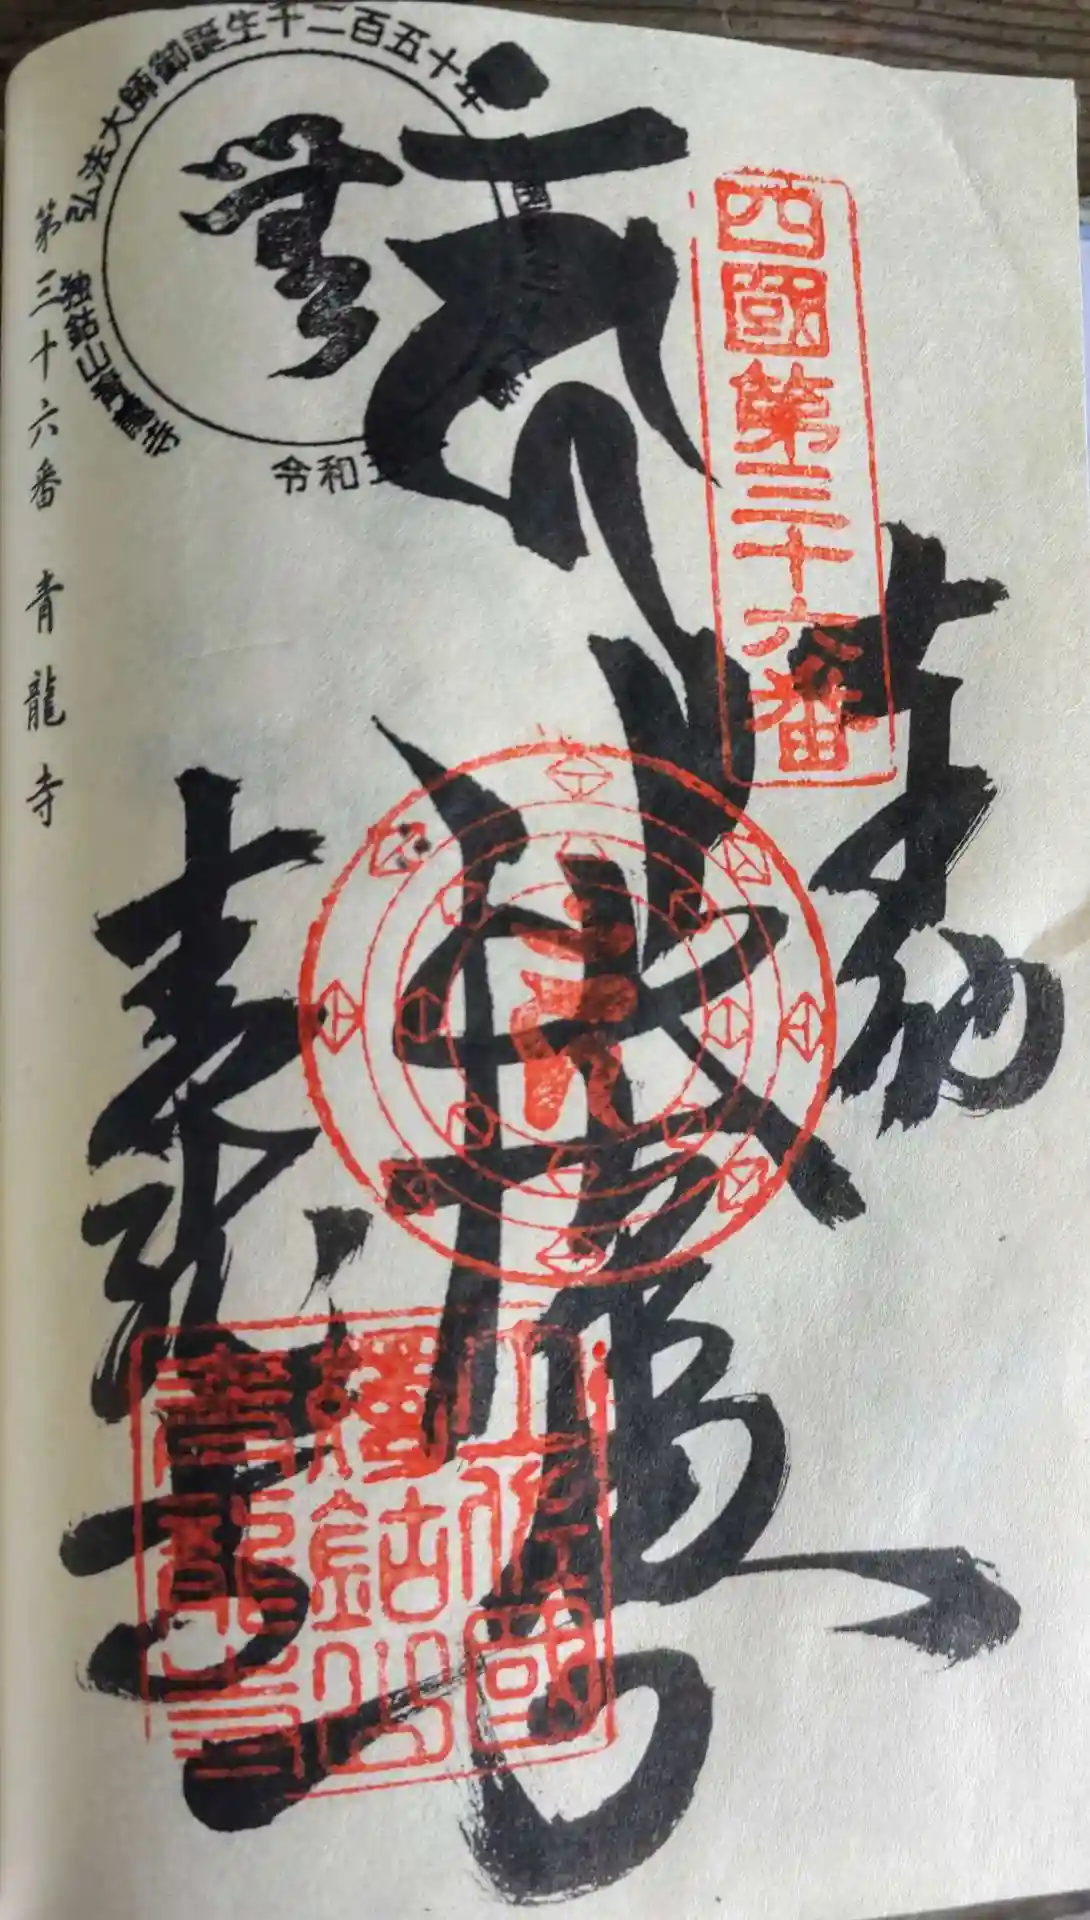 四國第三十六番
奉納
土佐國
獨鈷山
青龍寺
青龍寺
弘法大師御誕生千二百五十年
独鈷山青龍寺
令和
第三十六番 青龍寺